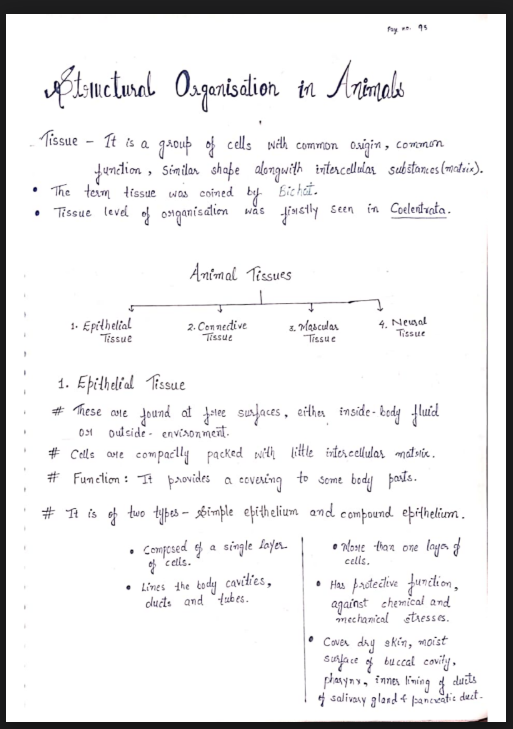 Pag no. 95
Structural Organisation in Animals
Tissue - It is a group of cells with common origin, common
function, similar shape alongwith intercellular substances (matrix).
• The term tissue was coined by Bichat.
• Tissue level of organisation was firstly seen in Coelentrata.
Animal Tissues
1. Epithelial Tissue
2. Connective Tissue
3. Mascular Tissue
4. Neural Tissue
1. Epithelial Tissue
# These are found at free surfaces, either inside-body fluid
or outside-environment.
# Cells are compactly packed with little intercellular matrix.
# Function: It provides a covering to some body parts.
# It is of two types - Simple epithelium and compound epithelium.
• Composed of a single layer
of cells.
• Lines the body cavities,
ducts and tubes.
• More than one layer of
cells.
• Has protective function,
against chemical and
mechanical stresses.
• Cover dry skin, moist
surface of buccal cavity,
pharynx, inner lining of ducts
of salivary gland & pancreatic duct.